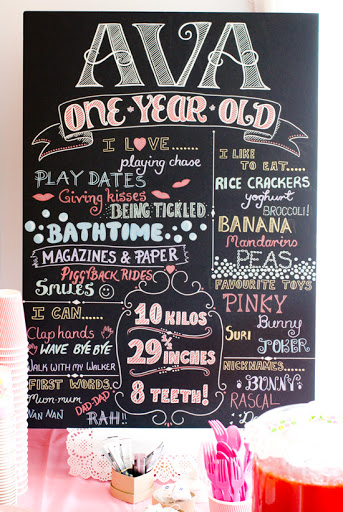 AVA
ONE • YEAR • OLD
I L♥VE......
playing chase
PLAY DATES
Giving kisses
BEING TICKLED
BATHTIME
MAGAZINES & PAPER
PIGGYBACK RIDES
Smiles
I CAN.....
Clap hands
WAVE BYE BYE
WALK WITH MY WALKER
FIRST WORDS..
Mum-mum
DAD-DAD
NAN NAN
RAH!!
10 KILOS
29 ¾ INCHES
8 TEETH!
I LIKE
TO EAT.....
RICE CRACKERS
yoghurt
BROCCOLI!
BANANA
Mandarins
PEAS
FAVOURITE TOYS
PINKY
Bunny
SURI
NICKNAMES.....
BONNY
RASCAL